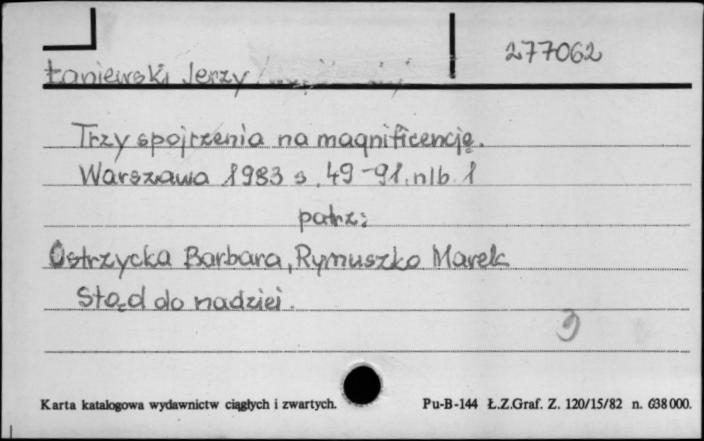 277062
Łaniewski Jerzy
Trzy spojrzenia na magnificencję.
Warszawa 1983 s. 49-91, nlb. 1
patrz:
Ostrzycka Barbara, Rymuszko Marek
Stąd do nadziei.
Karta katalogowa wydawnictw ciągłych i zwartych. Pu-B-144 Ł.Z.Graf. Z. 120/15/82 n. 638000.